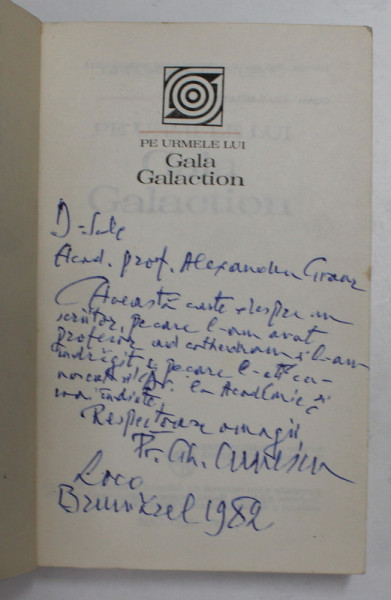 PE URMELE LUI
Gala
Galaction
D-Sale
Acad. prof. Alexandru Graur
Această carte despre un
scriitor, pe care l-am avut
profesor and l-am
îndrăgit și pe care l-ați cu-
noscut și dv. la Academie și
mai
Respectoase omagii,
Pr. Gh. Cunescu
Loco
1982